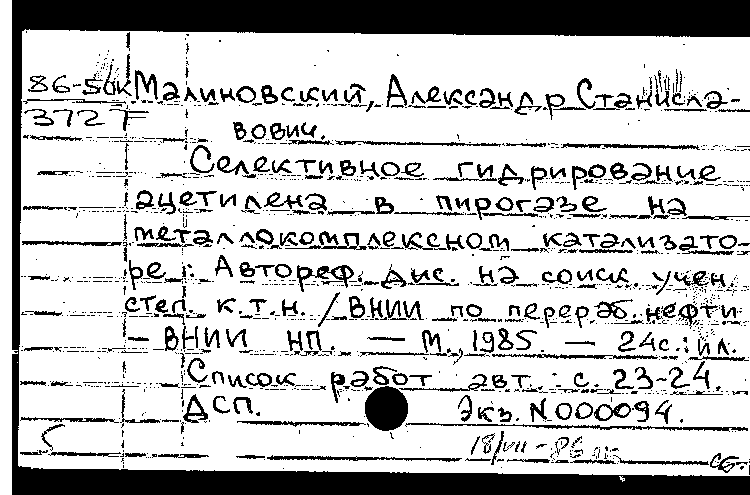 86-5дк Малиновский, Александр Станисла-
3727 вович.
Селективное гидрирование
ацетилена в пирогазе на
металлокомплексном катализато-
ре : Автореф. дис. на соиск. учен.
степ. к.т.н. / ВНИИ по перераб. нефти
- ВНИИ НП. — М., 1985. — 24с.: ил.
Список работ авт.: с. 23-24.
ДСП. Экз. N000094.
18/VII-86